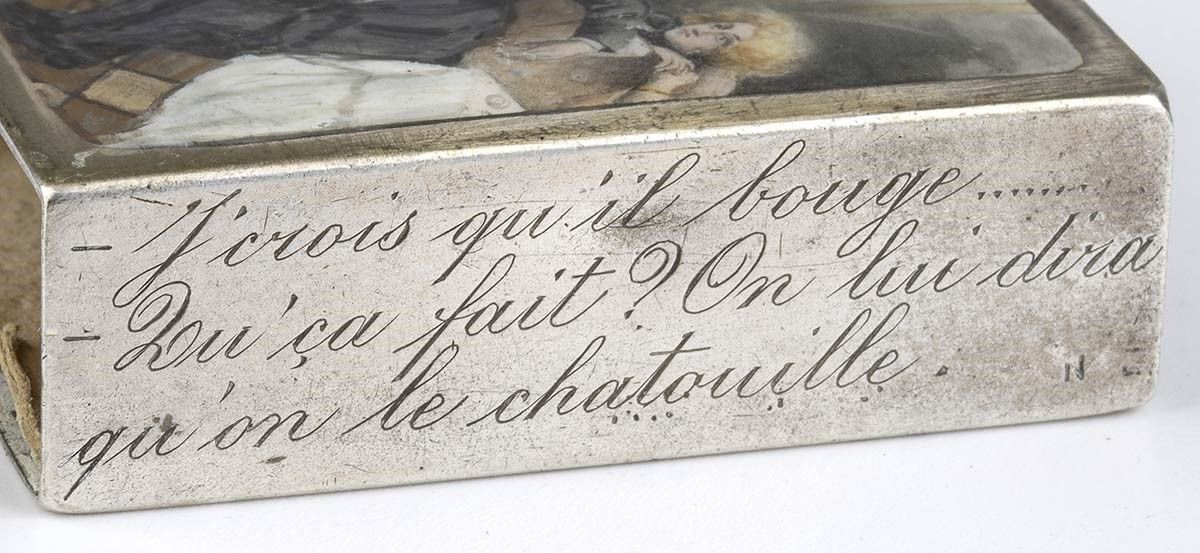 - J'crois qu'il bouge..........
- Qu'ça fait? On lui dira
qu'on le chatouille.
N